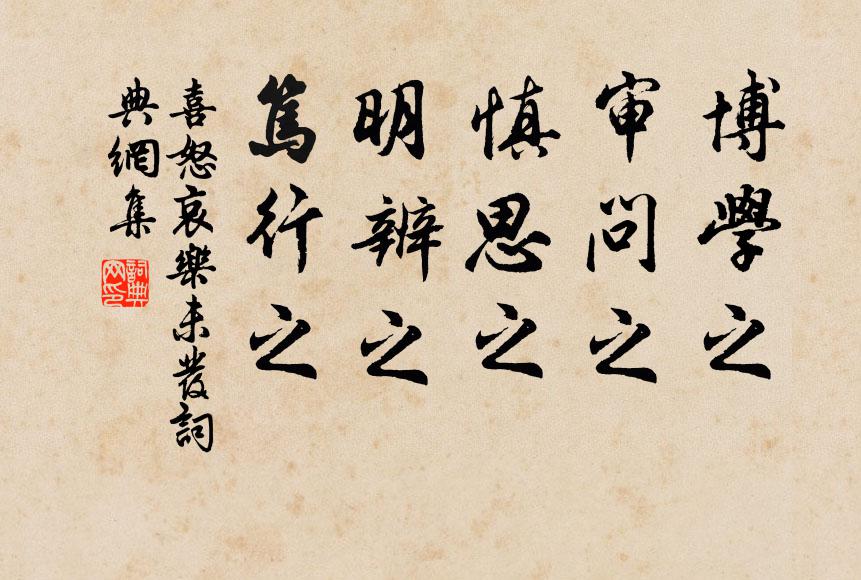 博學之
审问之
慎思之
明辨之
篤行之
喜怒哀樂未發詞
典網集
詞典
网印